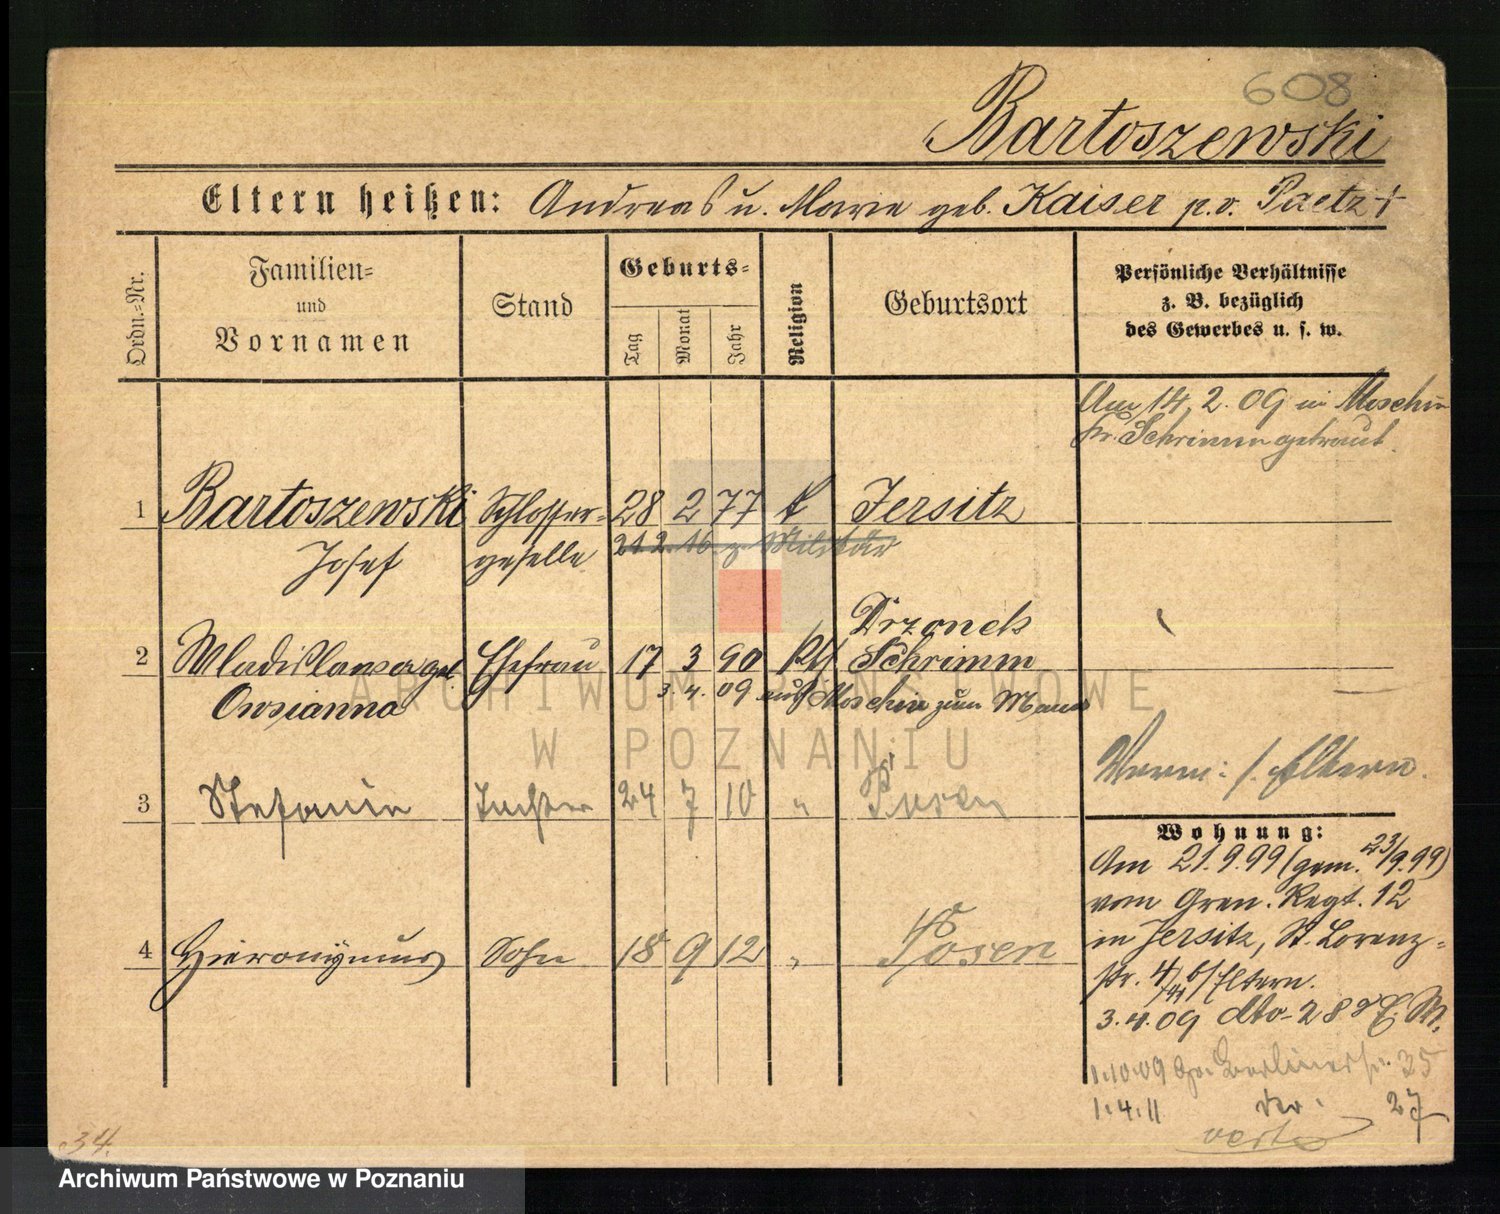 608
Bartoszewski
Eltern heißen: Andreas u. Marie geb. Kaiser p.v. Paetz +
Ordn.-Nr.
Familien-
und
Vornamen
Stand
Geburts-
Tag
Monat
Jahr
Religion
Geburtsort
Persönliche Verhältnisse
z. B. bezüglich
des Gewerbes u. s. w.
Am 14.2.09 in Moschin
Kr. Schrimm getraut.
1 Bartoszewski Schlosser- 28 2 77 k Jersitz
Josef geselle 21 2. 16 z. Militär
Drzonek
2 Wladislawa geb. Ehefrau 17 3 90 kth Schrimm
Owsianna 3.4. 09 aus Moschin zum Mann
Verm: s. Eltern.
3 Stefanie Tochter 24 7 10 " Posen
4 Hieronÿmus Sohn 18 9 12 " Posen
Wohnung:
Am 21.9.99 (gem. 23/9.99)
vom Gren. Regt. 12
in Jersitz, St. Lorenz-
str. 4 b/Eltern.
3.4.09 dto 28
1.10.09 Berlinerstr. 35
1.4.11 27
verte
34.
ARCHIWUM PAŃSTWOWE
W POZNANIU
Archiwum Państwowe w Poznaniu